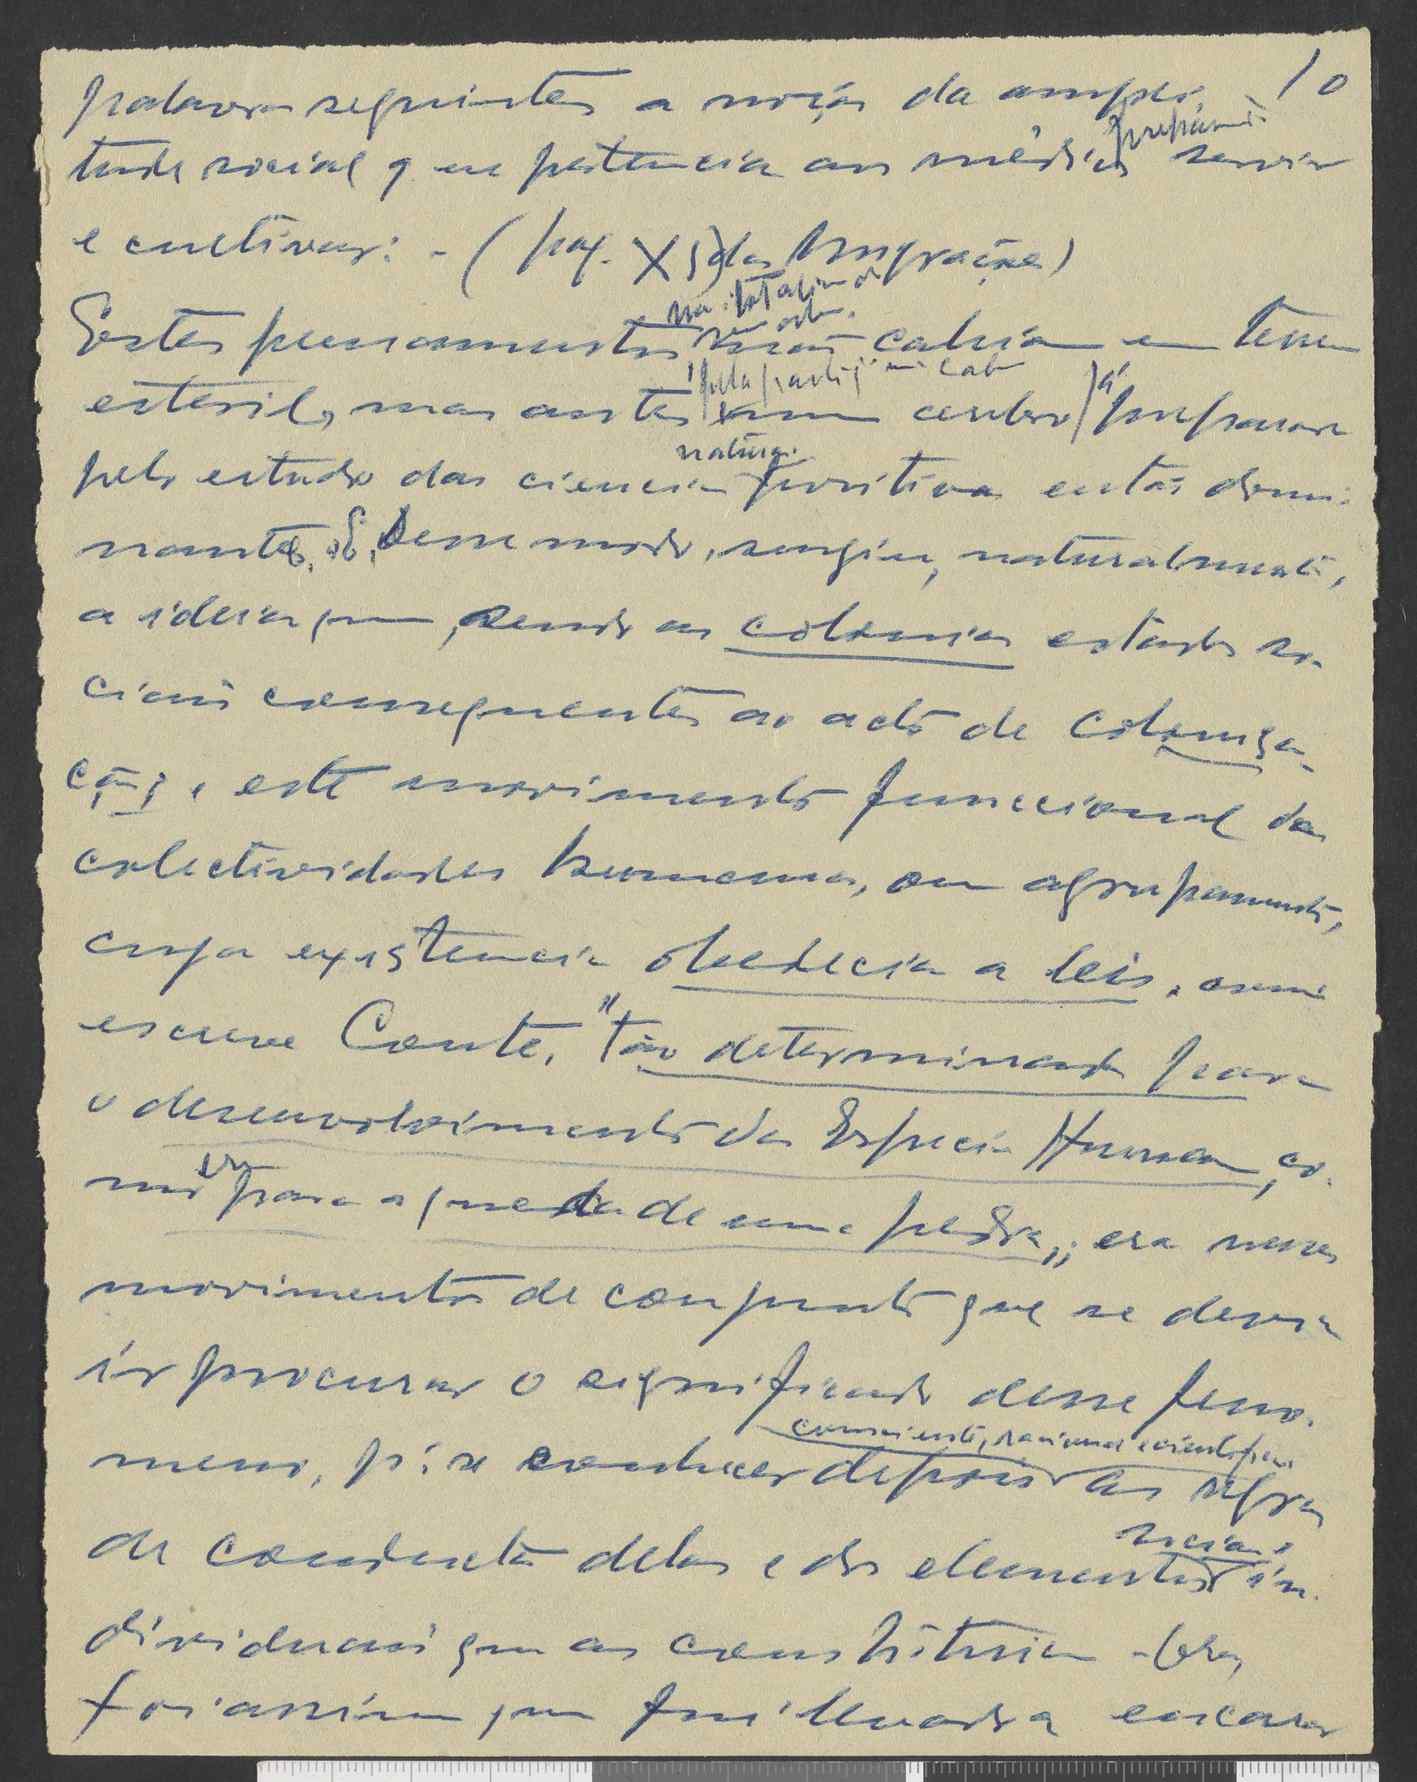 10
palavras seguintes a noção da ampli-
tude social q. eu pertencia aos médicos preparar servir
e cultivar: - (pag. XI) das Imigrações)
Estes pensamentos não cahiam em terreno
esteril, mas antes num cerebro já preparado
pelo estudo das ciencias natur. positivas então domi-
nantes. E, desse modo, surgiu, naturalmente,
a ideia que, sendo as colonias estados so-
ciais consequentes ao acto de coloniza-
ção; e este movimento funccional das
colectividades humanas, ou agrupamentos,
cuja existencia obedecia a leis, como
escreve Comte, "tão determinadas para
o desenvolvimento da Especie Humana, co-
mo para a queda de uma pedra"; era nesses
movimentos de conjunto que se devia
ir procurar o significado desse feno-
meno, p.ª se conhecer depois consciente, racional e cientificamente as regras
de conducta delas e dos elementos sociais in-
dividuais que as constituiam. Ora,
foi assim que fui levado a encarar